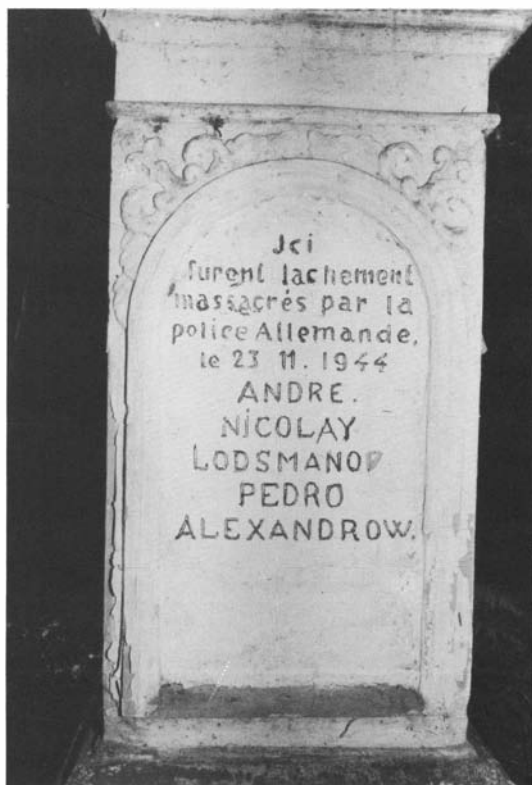 Jci
furent lachement
massacrés par la
police Allemande,
le 23 11. 1944
ANDRE.
NiCOLAY
LODSMANOV
PEDRO
ALEXANDROW.